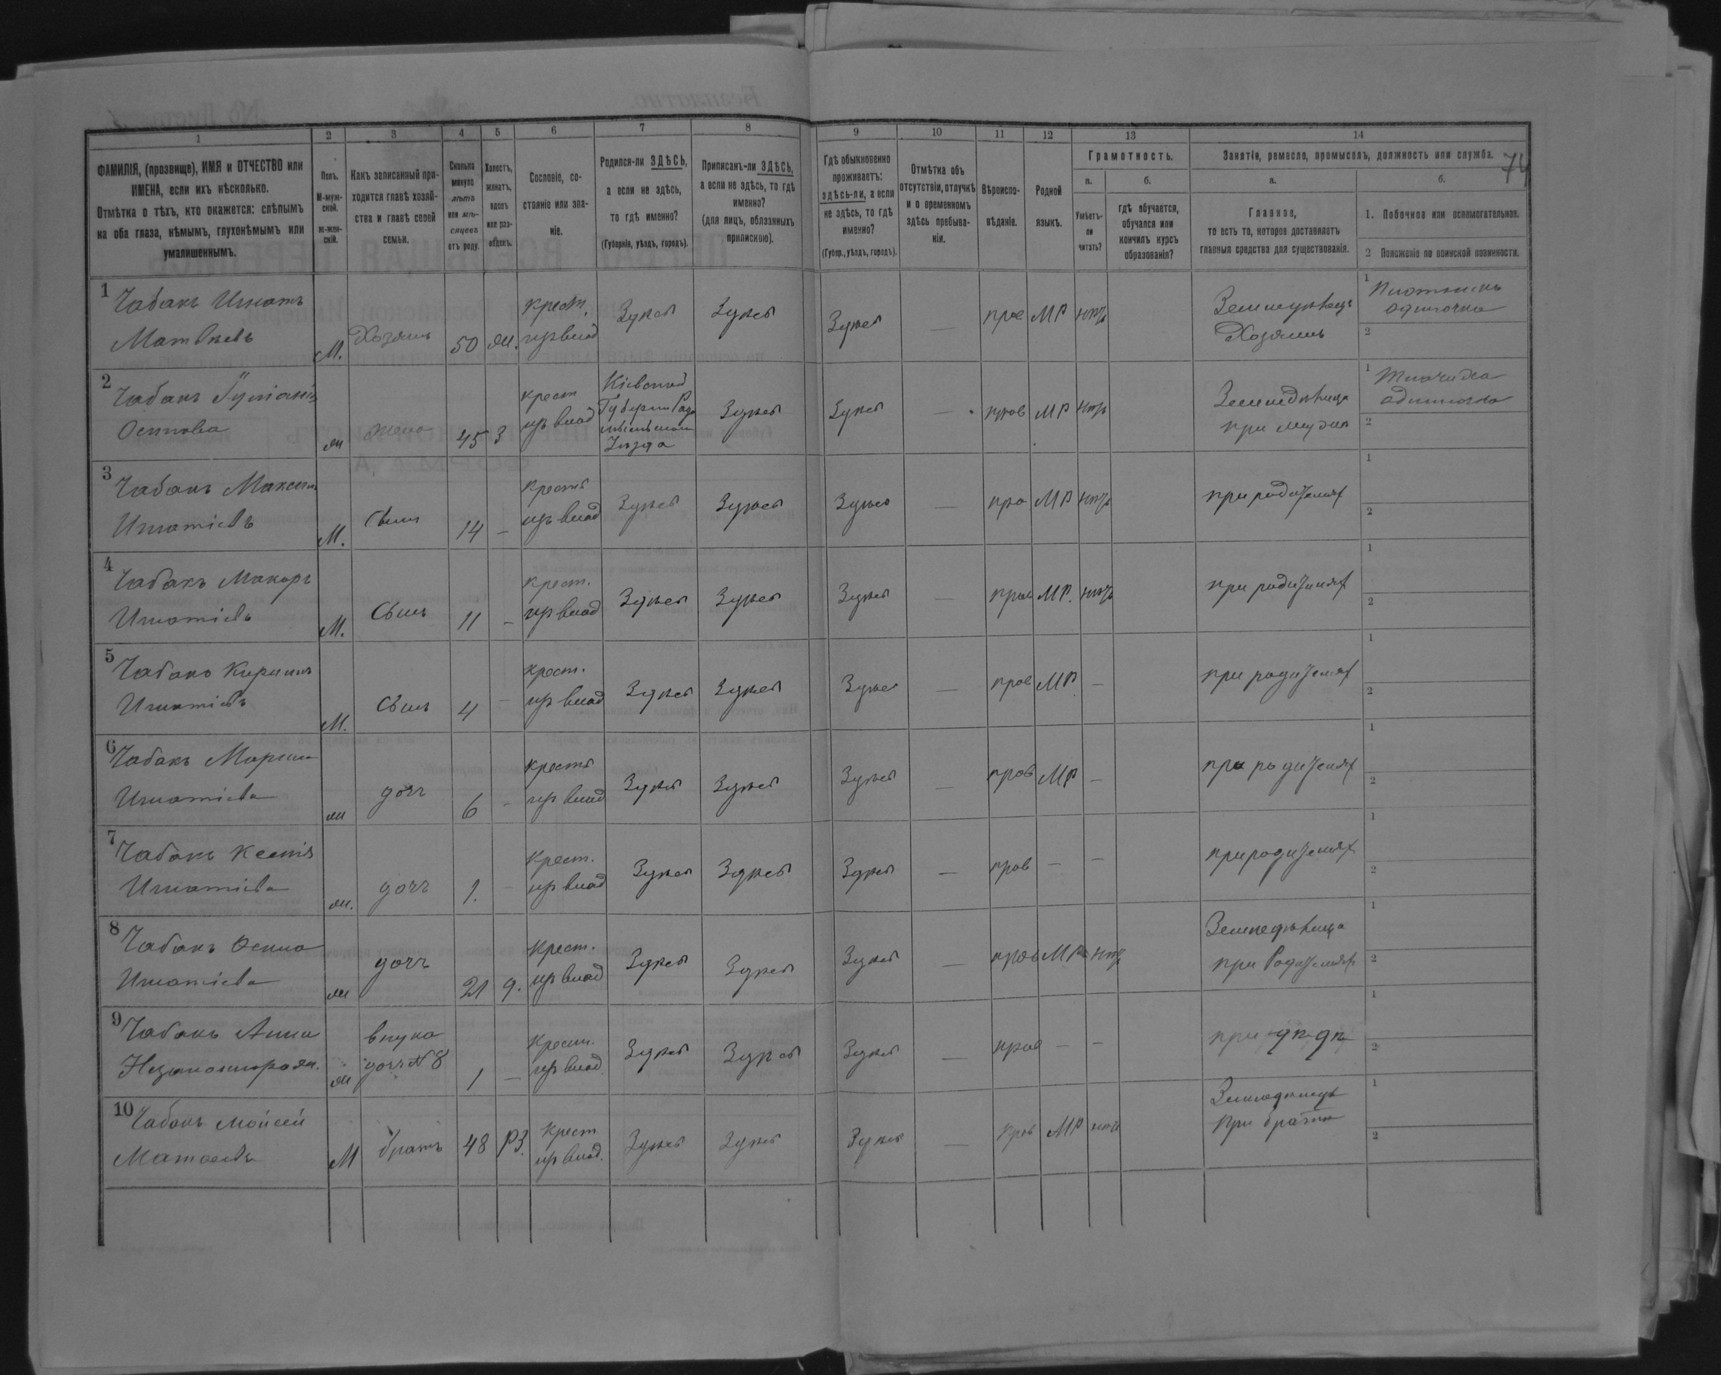 74
1 2 3 4 5 6 7 8 9 10 11 12 13 14
ФАМИЛІЯ, (прозвище), ИМЯ и ОТЧЕСТВО или
ИМЕНА, если ихъ нѣсколько.
Отмѣтка о тѣхъ, кто окажется: слѣпымъ
на оба глаза, нѣмымъ, глухонѣмымъ или
умалишеннымъ.
Полъ.
М-муж-
ской.
ж-жен-
скій.
Какъ записанный при-
ходится главѣ хозяй-
ства и главѣ своей
семьи.
Сколько
минуло
лѣтъ
или мѣ-
сяцевъ
отъ роду.
Холостъ,
женатъ,
вдовъ
или раз-
веденъ.
Сословіе, со-
стояніе или зва-
ніе.
Родился-ли ЗДѢСЬ,
а если не здѣсь,
то гдѣ именно?
(Губернія, уѣздъ, городъ).
Приписанъ-ли ЗДѢСЬ,
а если не здѣсь, то гдѣ
именно?
(для лицъ, обязанныхъ
припискою).
Гдѣ обыкновенно
проживаетъ:
здѣсь-ли, а если
не здѣсь, то гдѣ
именно?
(Губер., уѣздъ, городъ).
Отмѣтка объ
отсутствіи, отлучкѣ
и о временномъ
здѣсь пребыва-
ніи.
Вѣроиспо-
вѣданіе.
Родной
языкъ.
Грамотность.
а.
Умѣетъ-
ли
читать?
б.
гдѣ обучается,
обучался или
кончилъ курсъ
образованія?
Занятіе, ремесло, промыселъ, должность или служба.
а.
Главное,
то есть то, которое доставляетъ
главныя средства для существованія.
б.
1. Побочное или вспомогательное.
2 Положеніе по воинской повинности.
1 Чабанъ Игнатъ
Матвѣевъ
М. Хозяинъ 50 ж. крест.
изъ влад Здѣсь Здѣсь Здѣсь — прав МР нѣтъ
Земледѣлецъ
Хозяинъ
1 Плотникъ
одиночка
2
2 Чабанъ
Осипова
ж жена 45 З крест
изъ влад
Кіевской
Губерніи
Уѣзда
Здѣсь Здѣсь — прав МР нѣтъ
Земледѣлица
при мужѣ
1
одиночка
2
3 Чабанъ Максимъ
Игнатіевъ
М. Сынъ 14 — крест
изъ влад Здѣсь Здѣсь Здѣсь — пра МР нѣтъ
при родителях
1
2
4 Чабанъ Макаръ
Игнатіевъ
М. Сынъ 11 — крест.
изъ влад Здѣсь Здѣсь Здѣсь — прав МР. нѣтъ
при родителях
1
2
5 Чабанъ Кирилъ
Игнатіевъ
М. Сынъ 4 — крест.
изъ влад Здѣсь Здѣсь Здѣсь — прав МР. —
при родителях
1
2
6 Чабанъ
Игнатіева
ж дочь 6 — крест
изъ влад Здѣсь Здѣсь Здѣсь — прав МР —
при родителях
1
2
7 Чабанъ
Игнатіева
ж. дочь 1. — крест.
изъ влад Здѣсь Здѣсь Здѣсь — прав — —
при родителях
1
2
8 Чабанъ
Игнатіева
ж дочь 21 крест.
изъ влад Здѣсь Здѣсь Здѣсь — прав МР нѣтъ
Земледѣлица
при Родителях
1
2
9 Чабанъ Анна
ж внука
дочь № 8 1 — крест.
изъ влад. Здѣсь Здѣсь Здѣсь — прав — —
при
1
2
10 Чабанъ Мойсей
Матвеевъ
М братъ 48 РЗ. крест
изъ влад. Здѣсь Здѣсь Здѣсь — прав МР нѣт
Земледѣлецъ
при братѣ
1
2